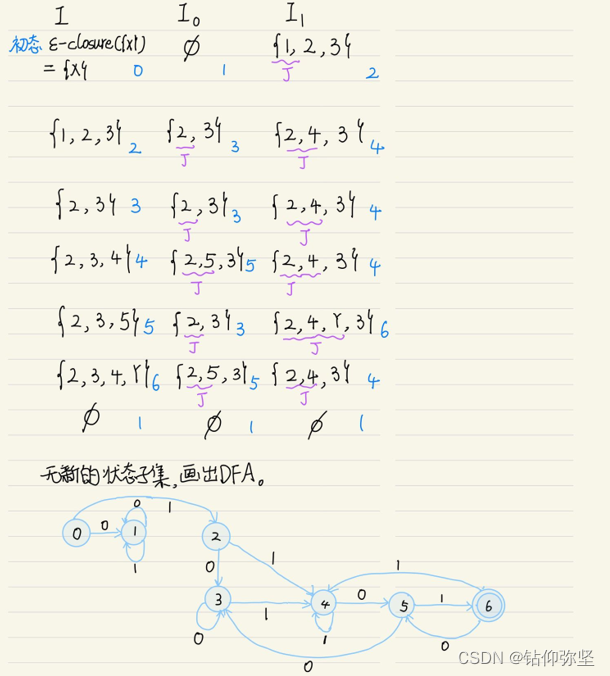 I I₀ I₁
初态 ε-closure({x}) ∅ {1, 2, 3}
= {x} 0 1 J 2
{1, 2, 3} 2 {2, 3} 3 {2, 4, 3} 4
J J
{2, 3} 3 {2, 3} 3 {2, 4, 3} 4
J J
{2, 3, 4} 4 {2, 5, 3} 5 {2, 4, 3} 4
J J
{2, 3, 5} 5 {2, 3} 3 {2, 4, Y, 3} 6
J J
{2, 3, 4, Y} 6 {2, 5, 3} 5 {2, 4, 3} 4
J J
∅ 1 ∅ 1 ∅ 1
无新的状态子集,画出DFA。
0 1
0 0 1 2
1 0 1 1
3 1 4 0 5 1 6
0 1 0
0
CSDN @钻仰弥坚